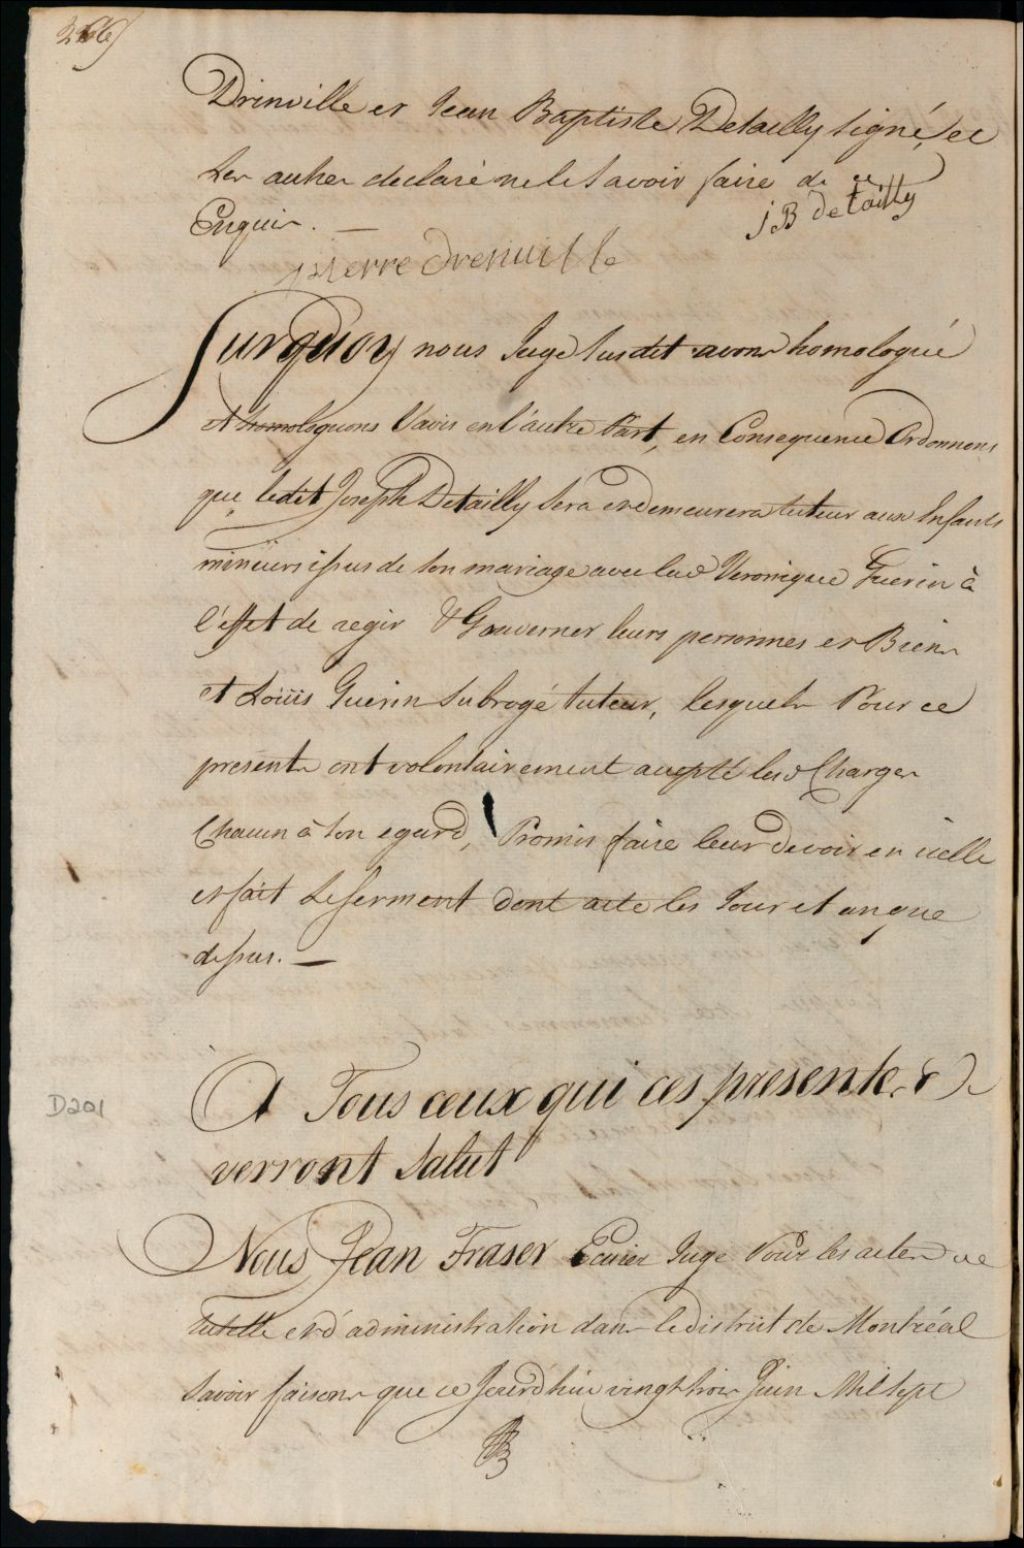 Drinville et Jean Baptiste Detailly signé, et
Les autres declaré ne le Savoir faire de ce
Enquis. —
J B detailly
pierre drenuille
Surquoy nous Juge Susdit avons homologué
et homologuons l'avis en l'autre Part, en Consequence Ordonnons
que ledit Joseph Detailly Sera et demeurera tuteur aux Enfants
mineurs issus de Son mariage avec lad Veronique Guerin à
l'effet de regir & Gouverner leurs personnes et Biens
et Loüis Guerin Subrogé tuteur, lesquels Pour ce
presents ont volontairement accepté lesd Charges
Chacun à Son egard, Promis faire leur devoir en icelle
et fait le serment dont acte les Jour et an que
dessus. —
A Tous ceux qui ces presentes
verront Salut
D201
Nous Jean Fraser Ecuier Juge Pour les actes de
tutelle et d'administration dans le district de Montréal
Savoir faisons que ce Jourd'hui vingt trois Juin Mil Sept